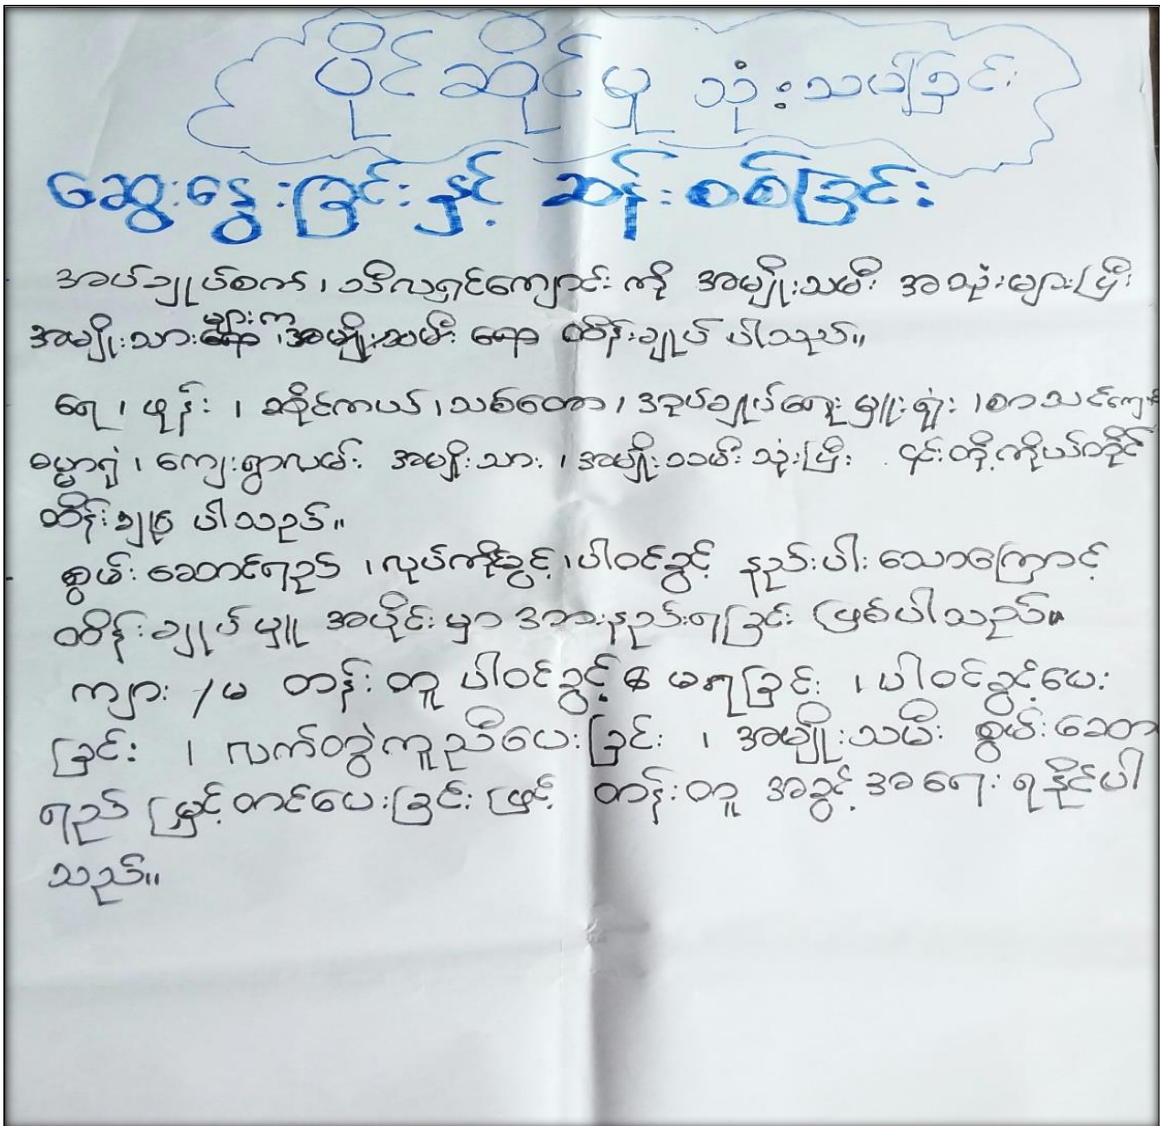 ပိုင်ဆိုင်မှု သုံးသပ်ခြင်း
ဆွေးနွေးခြင်းနှင့် ဆန်းစစ်ခြင်း
အပ်ချုပ်စက်၊ သီလရှင်ကျောင်း ကို အမျိုးသမီး အသုံးများပြီး
အမျိုးသားများက ၊အမျိုးသမီး ရော ထိန်းချုပ် ပါသည်။
ရေ ၊ ဖုန်း ၊ ဆိုင်ကယ် ၊သစ်တော ၊ အုပ်ချုပ်ရေးမှူးရုံး ၊စာသင်ကျောင်း
ဓမ္မာရုံ ၊ ကျေးရွာလမ်း အမျိုးသား ၊ အမျိုးသမီး သုံးပြီး ၎င်းတို့ကိုယ်တိုင်
ထိန်းချုပ် ပါသည်။
စွမ်းဆောင်ရည် ၊လုပ်ကိုင်ခွင့် ၊ပါဝင်ခွင့် နည်းပါးသောကြောင့်
ထိန်းချုပ်မှု အပိုင်းမှာ အားနည်းရခြင်း ဖြစ်ပါသည်။
ကျား /မ တန်းတူ ပါဝင်ခွင့် မရခြင်း ၊ ပါဝင်ခွင့်ပေး
ခြင်း ၊ လက်တွဲကူညီပေးခြင်း ၊ အမျိုးသမီး စွမ်းဆောင်
ရည် မြှင့်တင်ပေးခြင်း ဖြင့် တန်းတူ အခွင့်အရေး ရနိုင်ပါ
သည်။